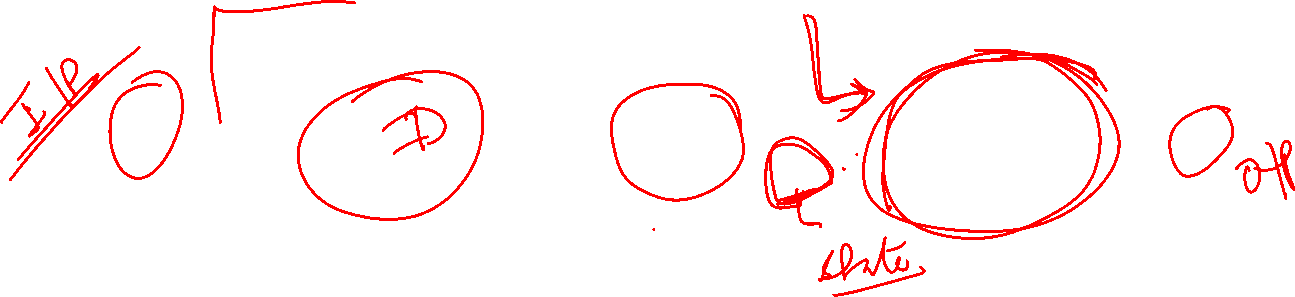 I/P
D
state
O/P